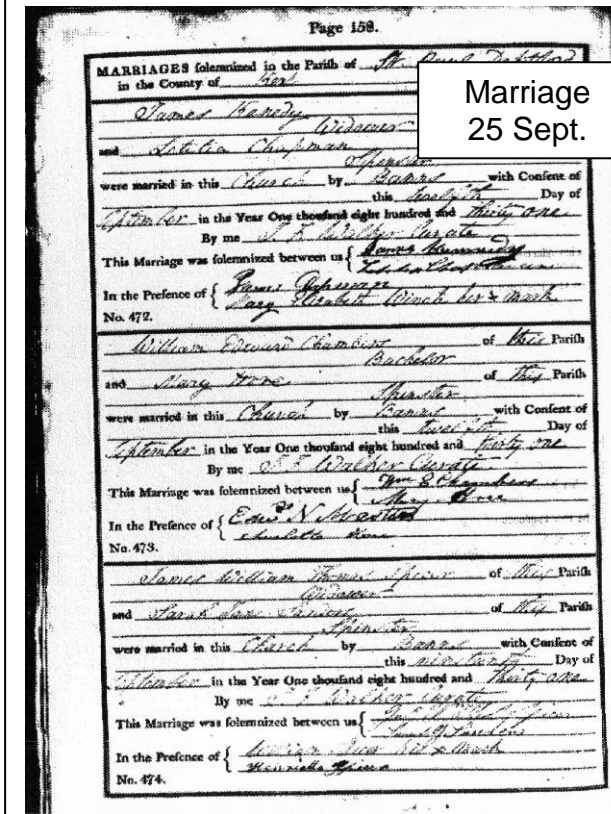 Page 158.
MARRIAGES solemnized in the Parish of St. Paul Deptford
in the County of Kent
Marriage
25 Sept.
James Kenedy
Widower
and Letitia Chapman
Spinster
were married in this Church by Banns with Consent of
this Day of
September in the Year One thousand eight hundred and thirty one
By me J. F. Walker Curate
This Marriage was solemnized between us { James Kennedy
In the Presence of { James
Mary Elizabeth Winch her x mark
No. 472.
William Edward Chambers of this Parish
Bachelor
and Mary of this Parish
Spinster
were married in this Church by Banns with Consent of
this twelfth Day of
September in the Year One thousand eight hundred and thirty one
By me J. F. Walker Curate
This Marriage was solemnized between us { Wm E Chambers
Mary
In the Presence of { N
Charlotte
No. 473.
James William Thomas of this Parish
Widower
and Sarah Jane of this Parish
Spinster
were married in this Church by Banns with Consent of
this Day of
September in the Year One thousand eight hundred and thirty one
By me J. F. Walker Curate
This Marriage was solemnized between us {
In the Presence of { William his x mark
Henrietta
No. 474.